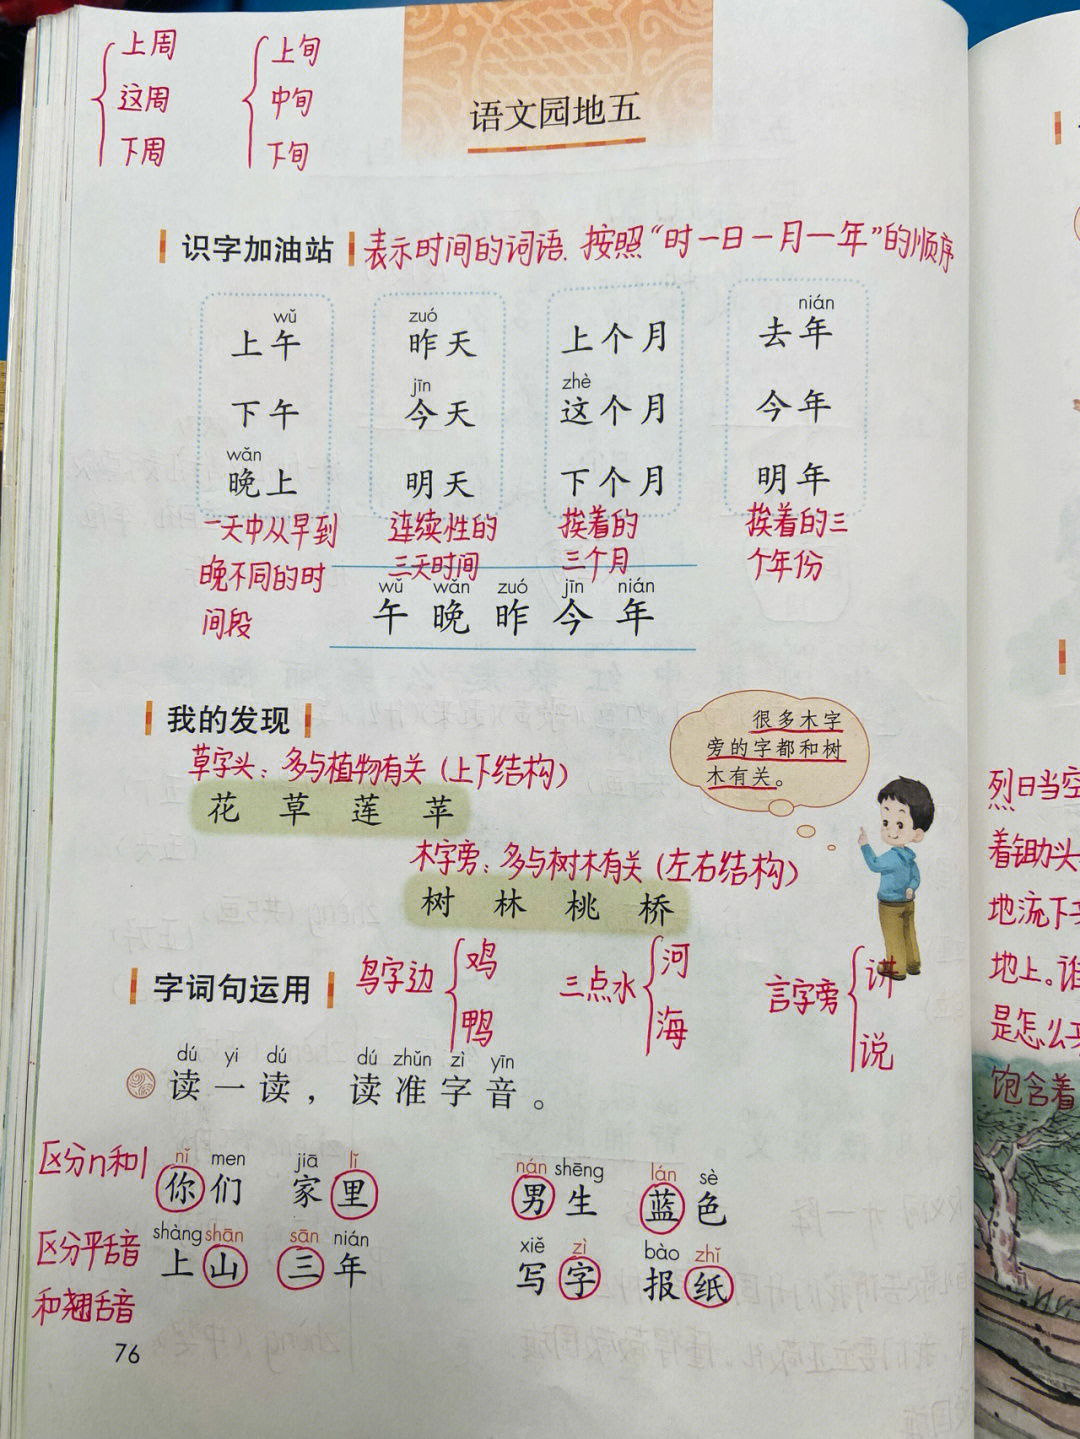 上周
这周
下周
上旬
中旬
下旬
语文园地五
识字加油站 表示时间的词语.按照“时一日一月一年”的顺序
wǔ zuó nián
上午 昨天 上个月 去年
jīn zhè
下午 今天 这个月 今年
wǎn
晚上 明天 下个月 明年
一天中从早到
晚不同的时
间段
连续性的
三天时间
挨着的
三个月
挨着的三
个年份
wǔ wǎn zuó jīn nián
午 晚 昨 今 年
我的发现
很多木字
旁的字都和树
木有关。
草字头：多与植物有关（上下结构）
花 草 莲 苹
木字旁：多与树木有关（左右结构）
树 林 桃 桥
字词句运用
鸟字边 鸡 鸭
三点水 河 海
言字旁 讲 说
dú yi dú dú zhǔn zì yīn
读一读，读准字音。
区分n和l
nǐ men jiā lǐ nán shēng lán sè
你们 家里 男生 蓝色
区分平舌音
和翘舌音
shàng shān sān nián xiě zì bào zhǐ
上山 三年 写字 报纸
76
烈日当空
着锄头
地流下
地上。谁
是怎么
饱含着